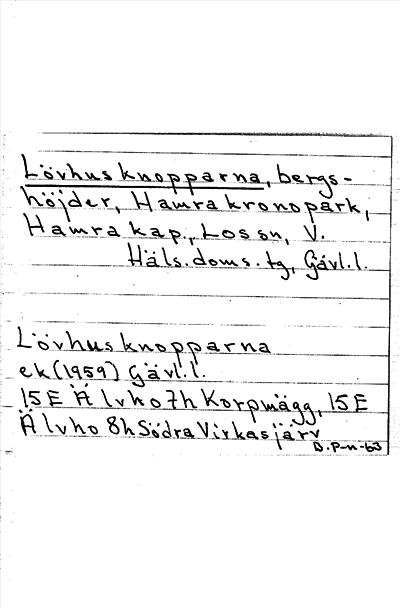 Lövhusknopparna, bergs-
höjder, Hamra kronopark,
Hamra kap., Los sn, V.
Häls. doms. tg, Gävl. l.
Lövhusknopparna
ek (1959) Gävl. l.
15E Älvho 7h Korpmägg, 15E
Älvho 8h Södra Virkasjärv
B. P-n-63